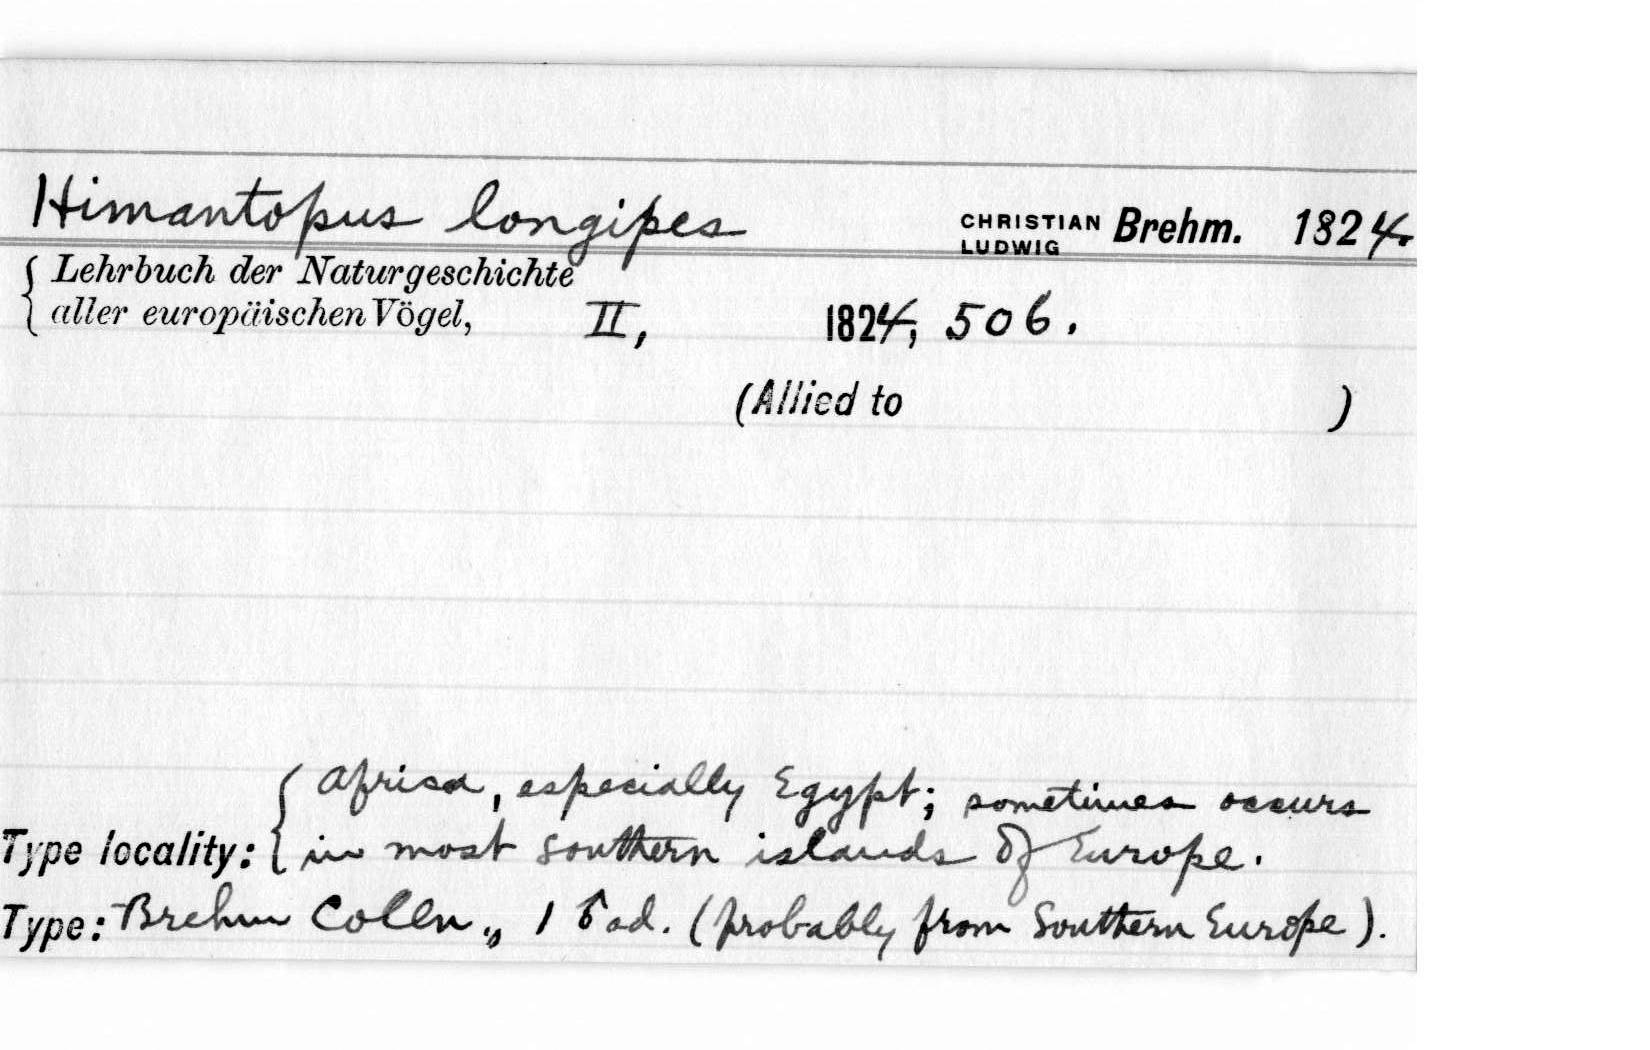 Himantopus longipes CHRISTIAN LUDWIG Brehm. 1824.
Lehrbuch der Naturgeschichte
aller europäischen Vögel, II, 1824, 506.
(Allied to )
Africa, especially Egypt; sometimes occurs
Type locality: in most southern islands of Europe.
Type: Brehm Colln., 1 ad. (probably from Southern Europe).